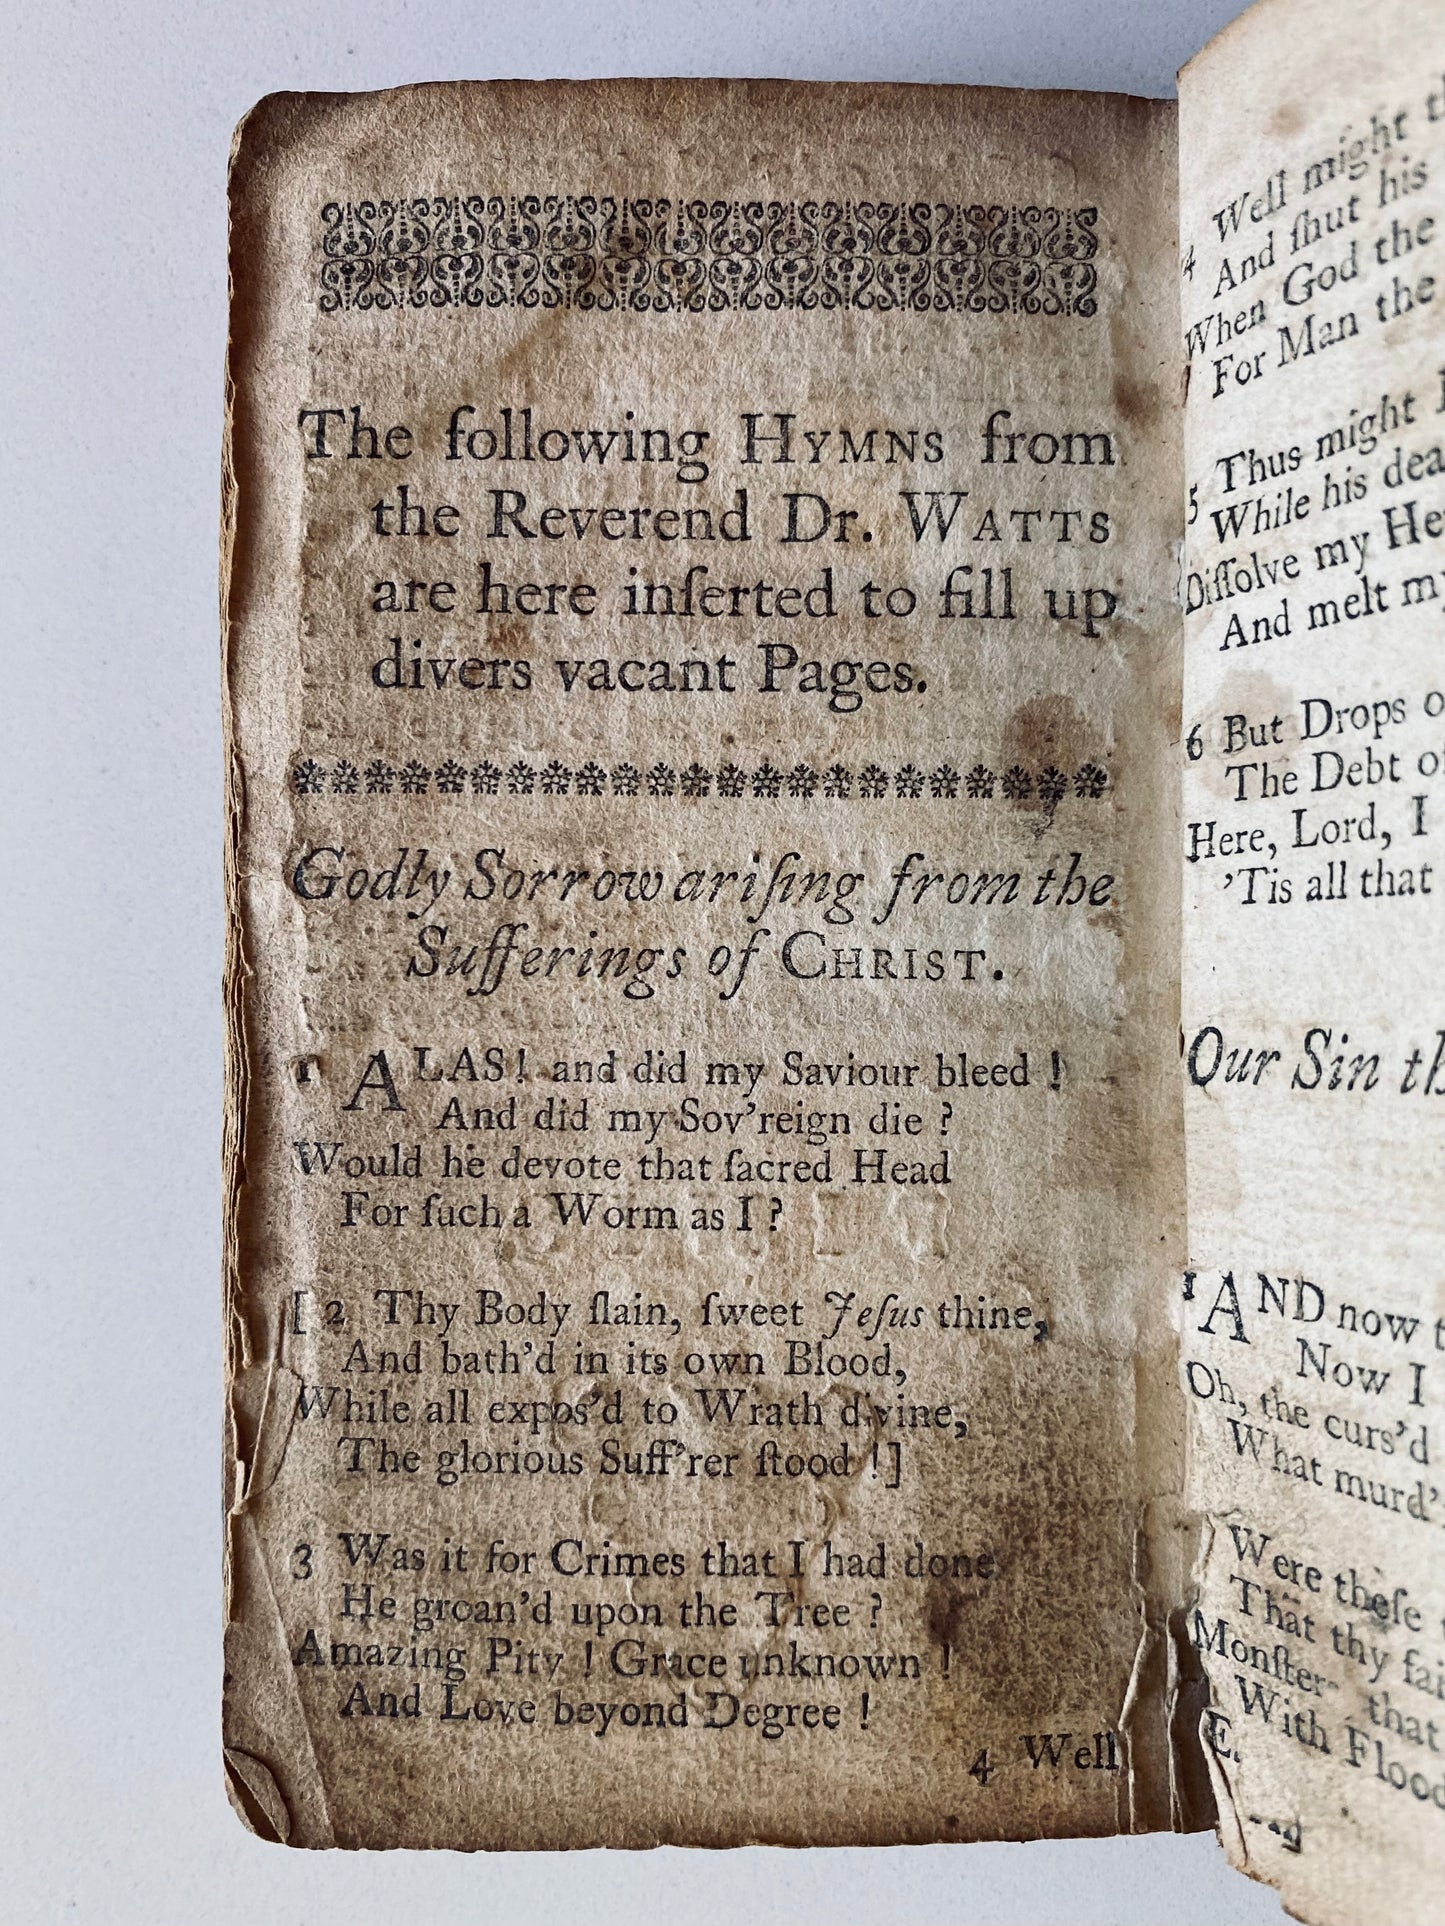 The following HYMNS from
the Reverend Dr. WATTS
are here inſerted to fill up
divers vacant Pages.
Godly Sorrow ariſing from the
Sufferings of CHRIST.
1 ALAS! and did my Saviour bleed !
And did my Sov'reign die ?
Would he devote that ſacred Head
For ſuch a Worm as I ?
[ 2 Thy Body ſlain, ſweet Jeſus thine,
And bath'd in its own Blood,
While all expos'd to Wrath divine,
The glorious Suff'rer ſtood !]
3 Was it for Crimes that I had done
He groan'd upon the Tree ?
Amazing Pity ! Grace unknown !
And Love beyond Degree !
4 Well
4 Well might
And ſhut his
When God the
For Man the
5 Thus might
While his
Diſſolve my
And melt
6 But Drops
The Debt
Here, Lord, I
'Tis all that
Our Sin
1 AND now
Now I
Oh, the curs'd
What
Were theſe
That thy
Monſter- that
With
E.